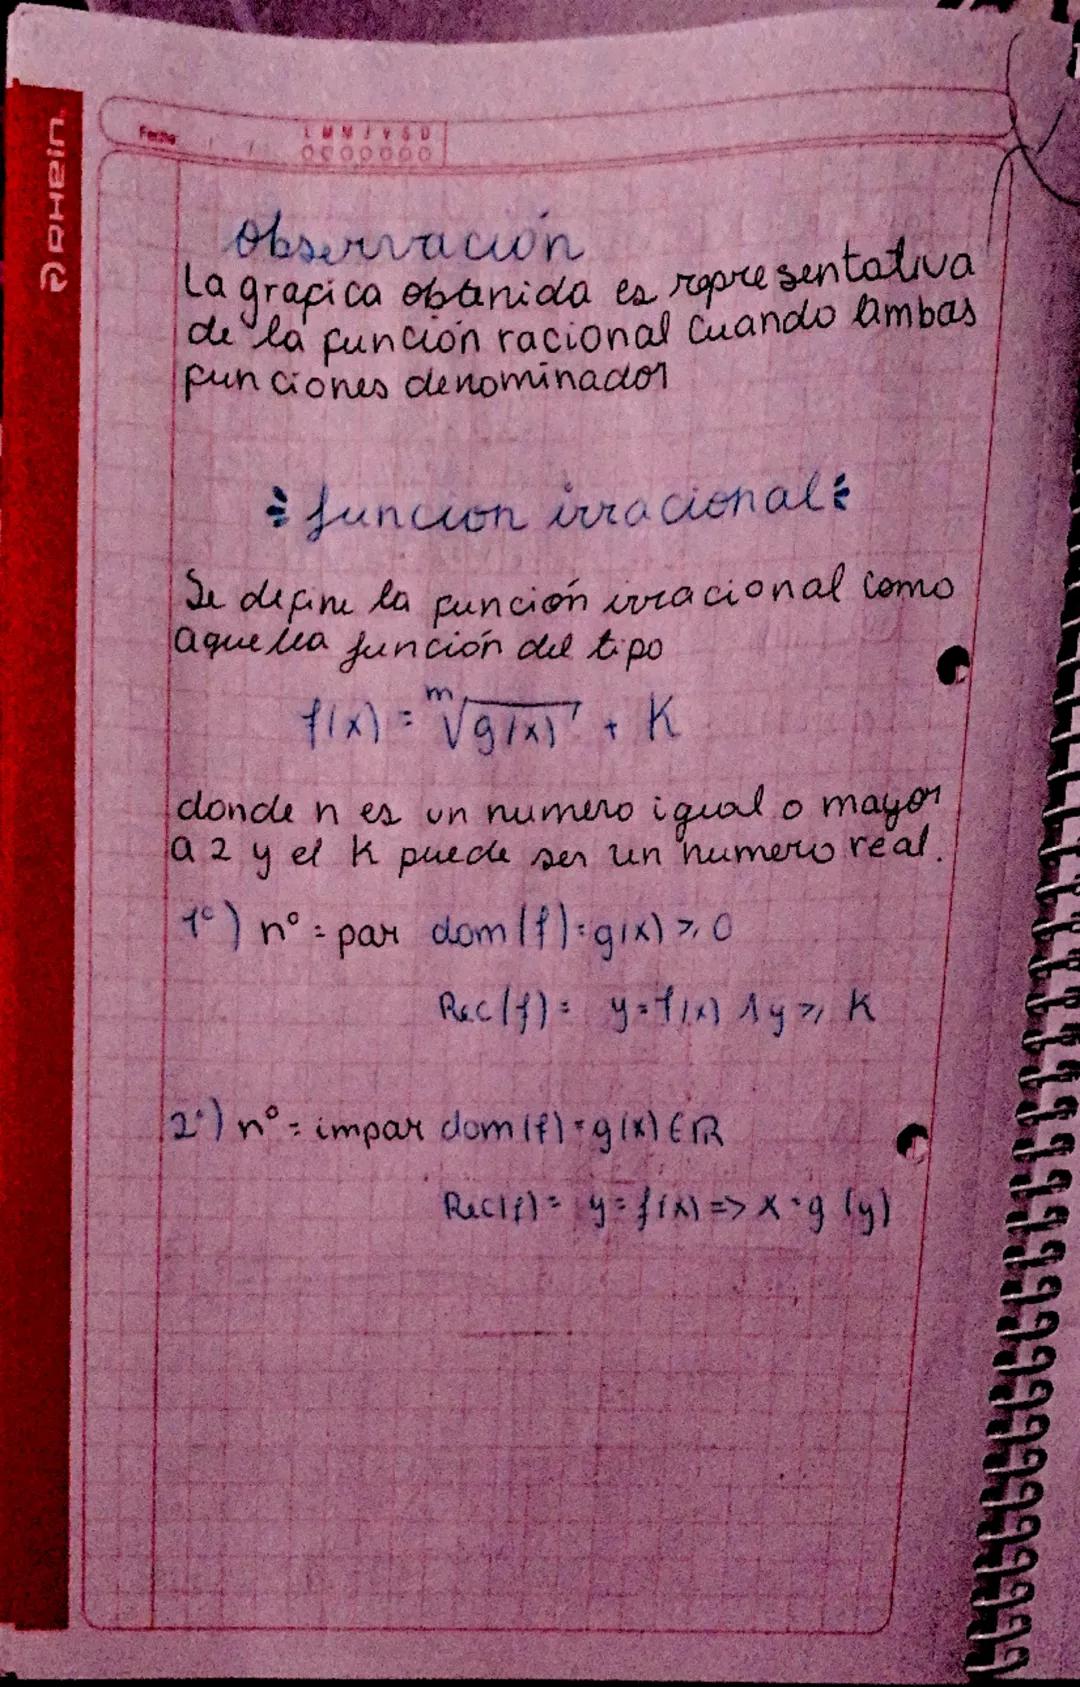 RHein
Fecha
L M M J V S D
Observación
La grafica obtenida es representativa
de la función racional cuando ambas
funciones denominador
función irracional
Se define la función irracional como
aquella función del tipo
f(x) = ᵐ√g(x) + K
donde n es un numero igual o mayor
a 2 y el K puede ser un numero real.
1°) n° = par dom(f) = g(x) ≥ 0
Rec(f) = y = f(x) ∧ y ≥ K
2°) n° = impar dom(f) = g(x) ∈ ℝ
Rec(f) = y = f(x) => x = g(y)